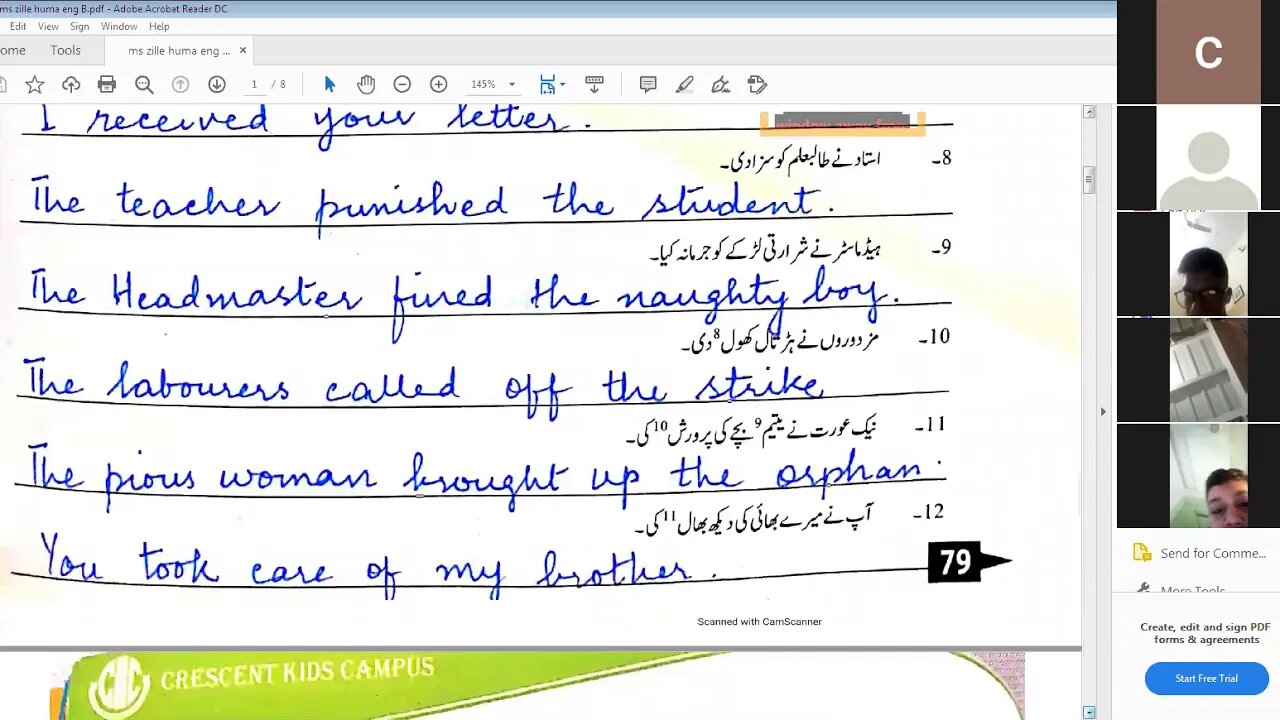 ms zille huma eng B.pdf - Adobe Acrobat Reader DC
Edit View Sign Window Help
ome Tools ms zille huma eng ... ×
1 / 8 145%
I received your letter.
window away from
8۔ استاد نے طالبعلم کو سزا دی۔
The teacher punished the student.
9۔ ہیڈ ماسٹر نے شرارتی لڑکے کو جرمانہ کیا۔
The Headmaster fined the naughty boy.
10۔ مزدوروں نے ہڑتال کھول⁸ دی۔
The labourers called off the strike
11۔ نیک عورت نے یتیم⁹ بچے کی پرورش¹⁰ کی۔
The pious woman brought up the orphan.
12۔ آپ نے میرے بھائی کی دیکھ بھال¹¹ کی۔
You took care of my brother.
79
Scanned with CamScanner
CRESCENT KIDS CAMPUS
C
Send for Comme...
More Tools
Create, edit and sign PDF
forms & agreements
Start Free Trial